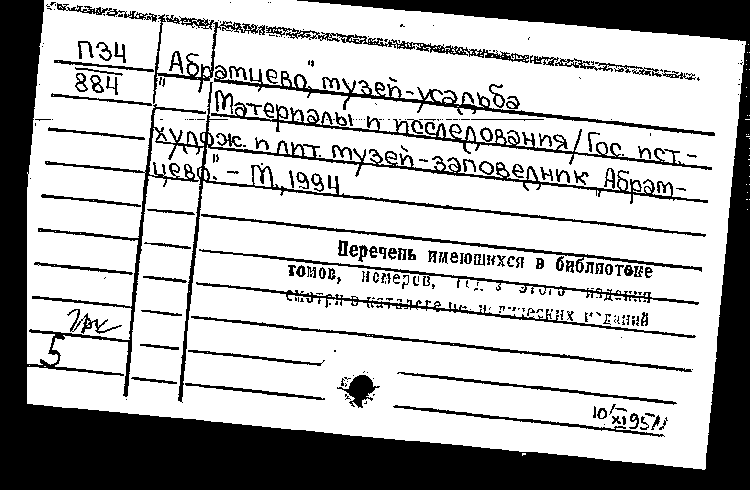 П34
884
"Абрамцево", музей-усадьба
Материалы и исследования/Гос. ист.-
худож. и лит. музей-заповедник "Абрам-
цево". - М., 1994
Перечень имеющихся в библиотеке
томов, номеров, год в этого издания
смотри в каталоге периодических изданий
5
10/XI95